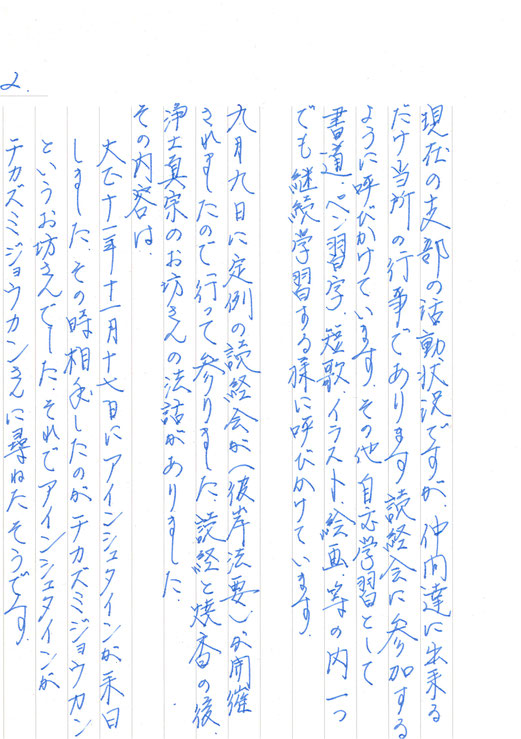 現在の支部の活動状況ですが、仲間達に出来る
だけ当所の行事であります読経会に参加する
ように呼びかけています。その他自主学習として
書道・ペン習字、短歌、イラスト、絵画、等の内一つ
でも継続学習する様に呼びかけています。
九月九日に定例の読経会が(彼岸法要)が開催
されましたので行って参りました。読経と焼香の後、
浄土真宗のお坊さんの法話がありました。
その内容は、
大正十一年十一月十七日にアインシュタインが来日
しました。その時相手したのがチカズミジョウカン
というお坊さんでした。それでアインシュタインが
チカズミジョウカンさんに尋ねたそうです。
2.